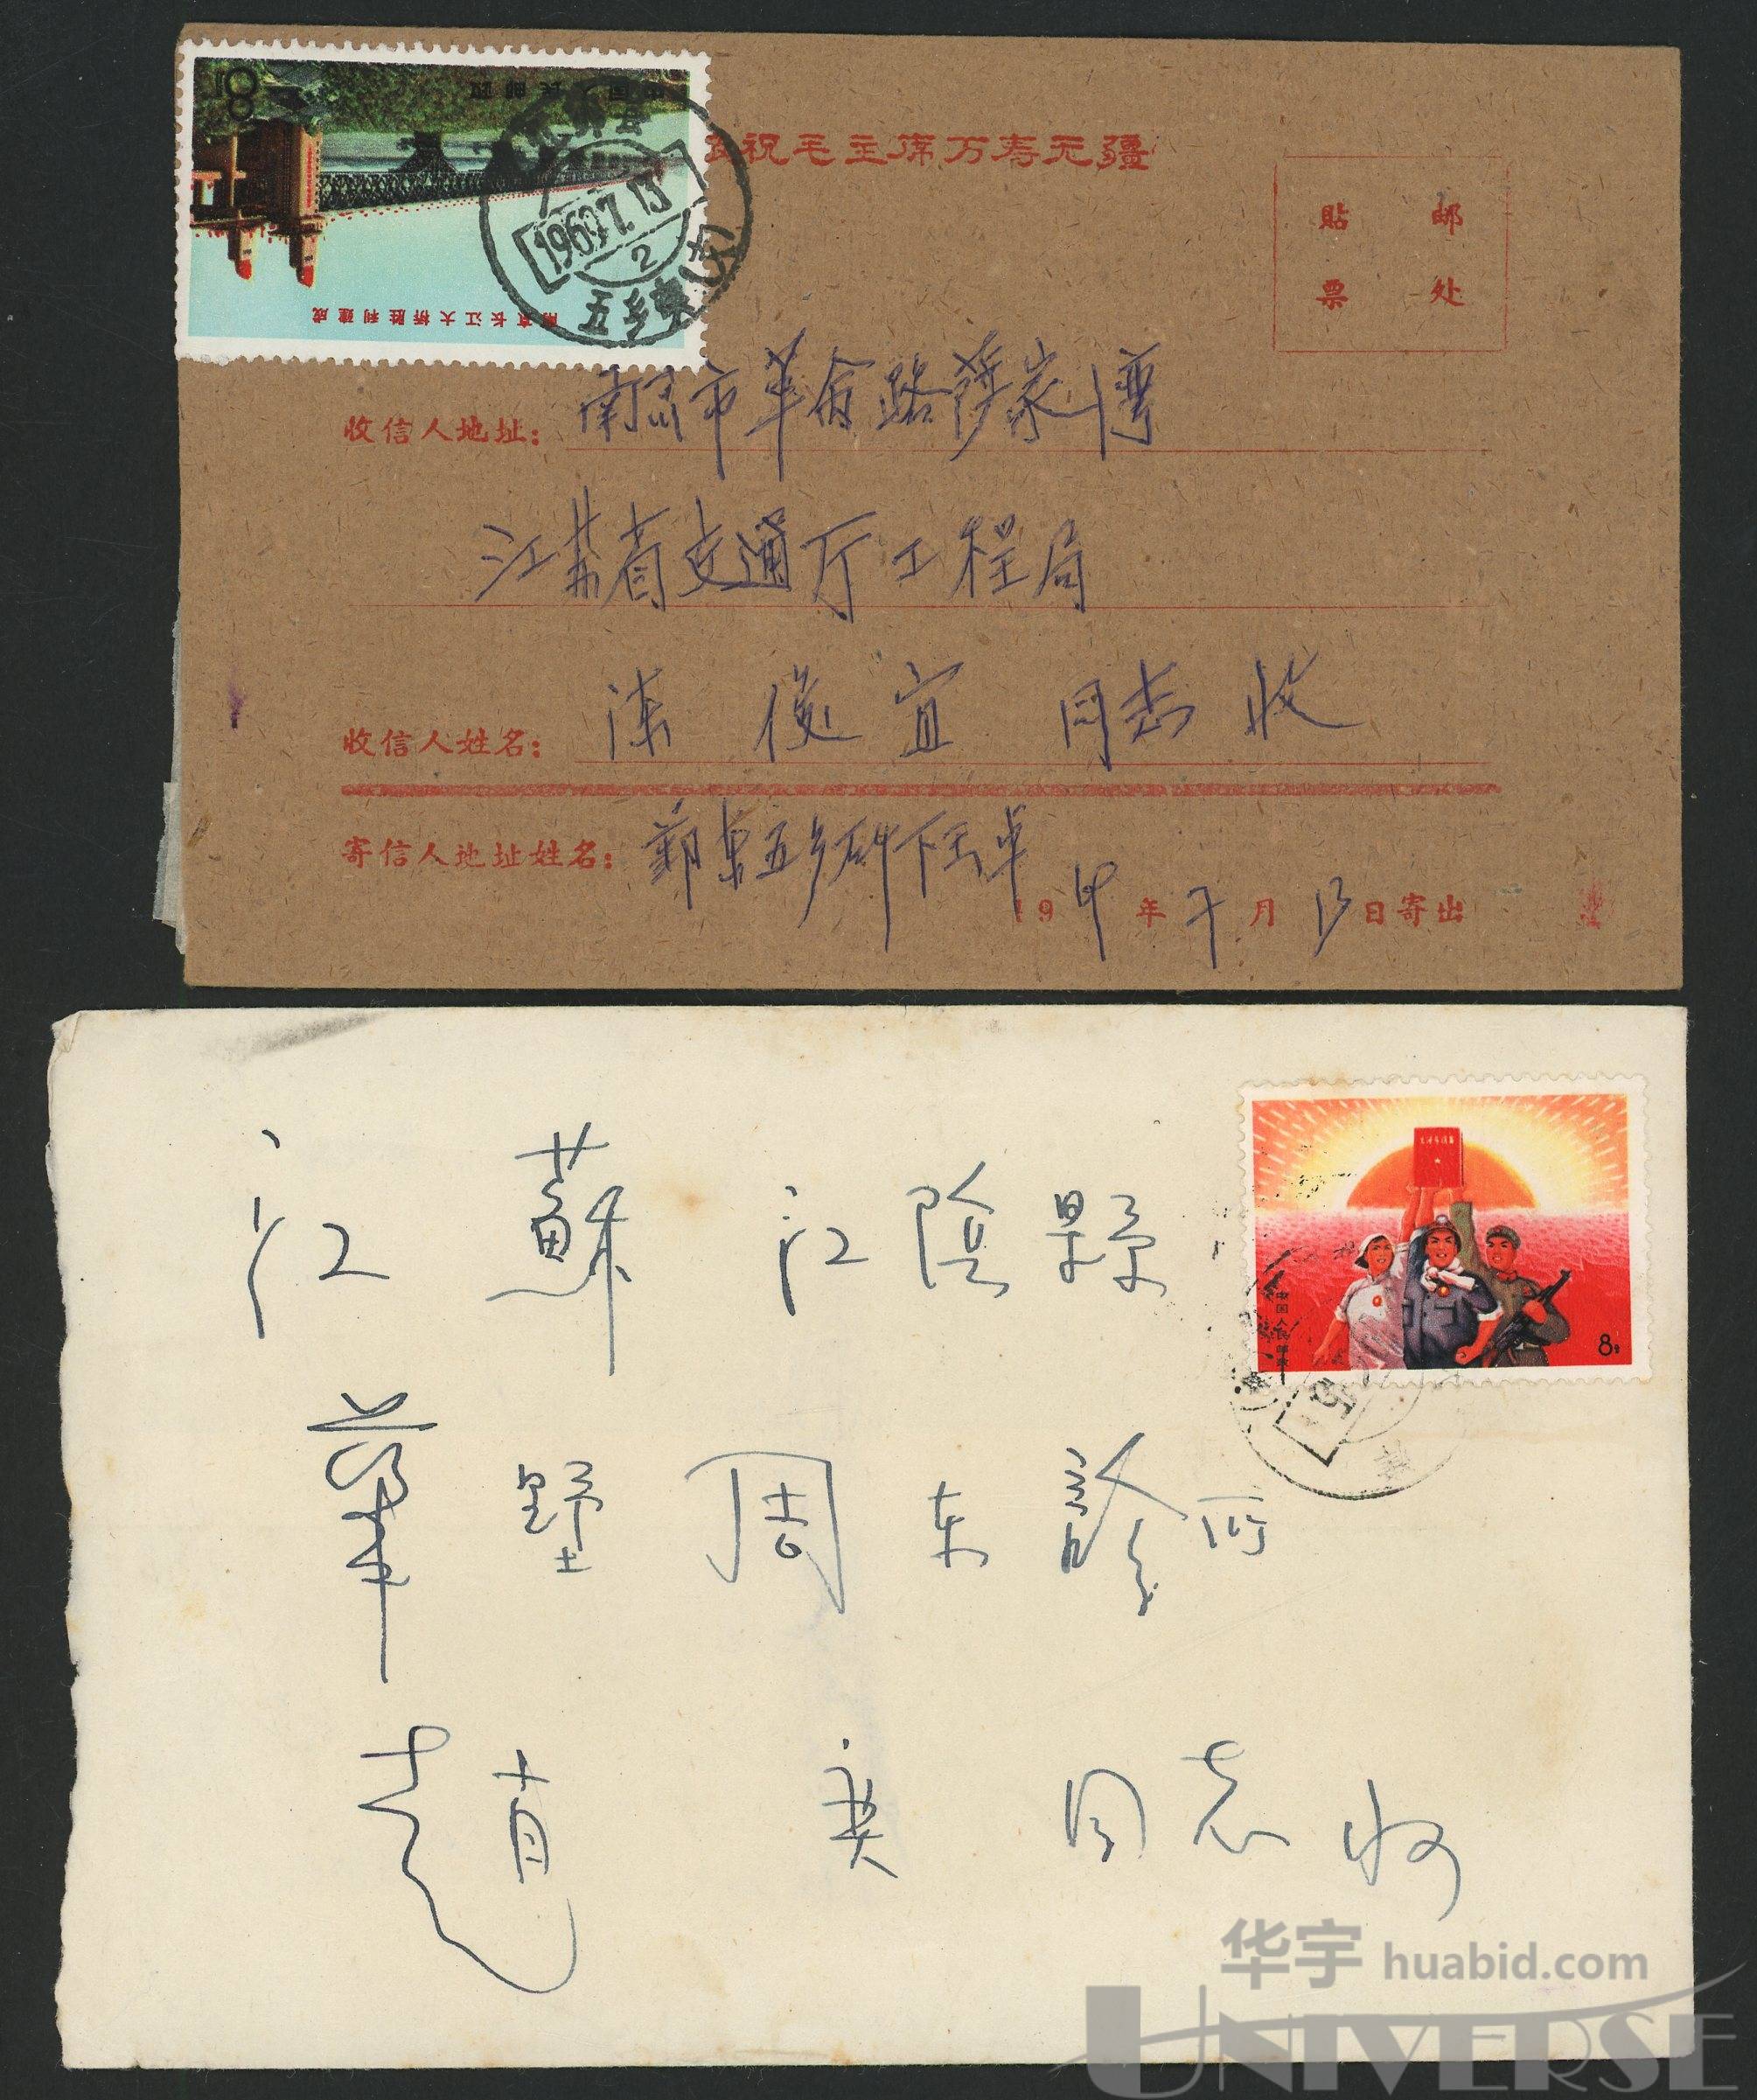 中国人民邮政
8分
南京长江大桥胜利建成
1969.7.13
2
五乡東
祝毛主席万寿无疆
邮
贴
处
票
收信人地址：南京市革命路薛家湾
江苏省交通厅工程局
收信人姓名：陈俊宜 同志收
寄信人地址姓名：鄞東五乡
19 年 7 月 13 日寄出
江蘇 江陰縣
中国人民邮政
8分
華墅周东診所
赵黄奕 同志收
华宇 huabid.com
UNIVERSE